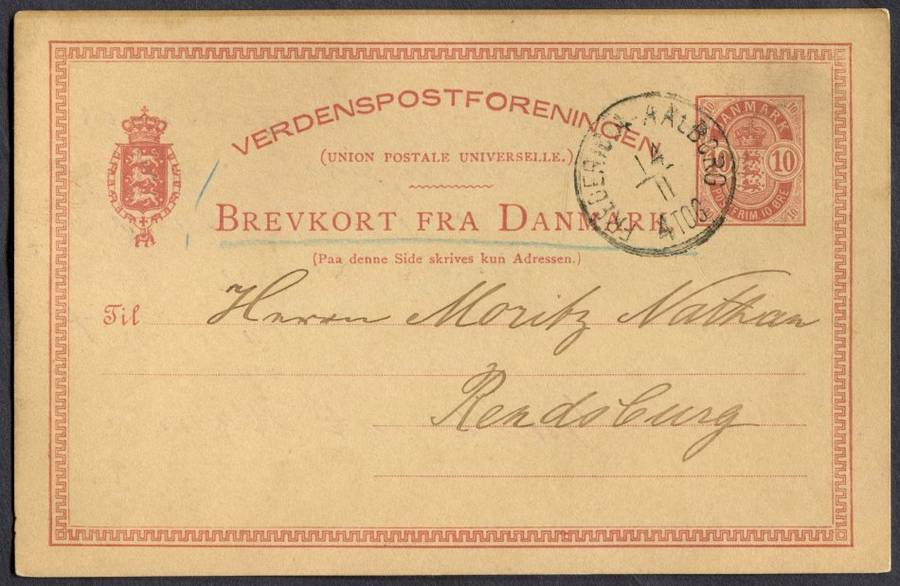 VERDENSPOSTFORENINGEN
(UNION POSTALE UNIVERSELLE.)
BREVKORT FRA DANMARK
(Paa denne Side skrives kun Adressen.)
DANMARK
10
POSTFRIM 10 ØRE
10
10
10
FREDERICIA-AALBORG
14/11
4TOG
Til Herrn Moritz Nathan
Rendsburg